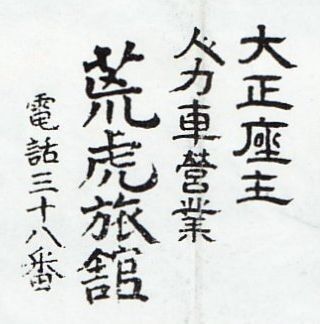 大正座主
人力車営業
荒虎旅舘
電話三十八番